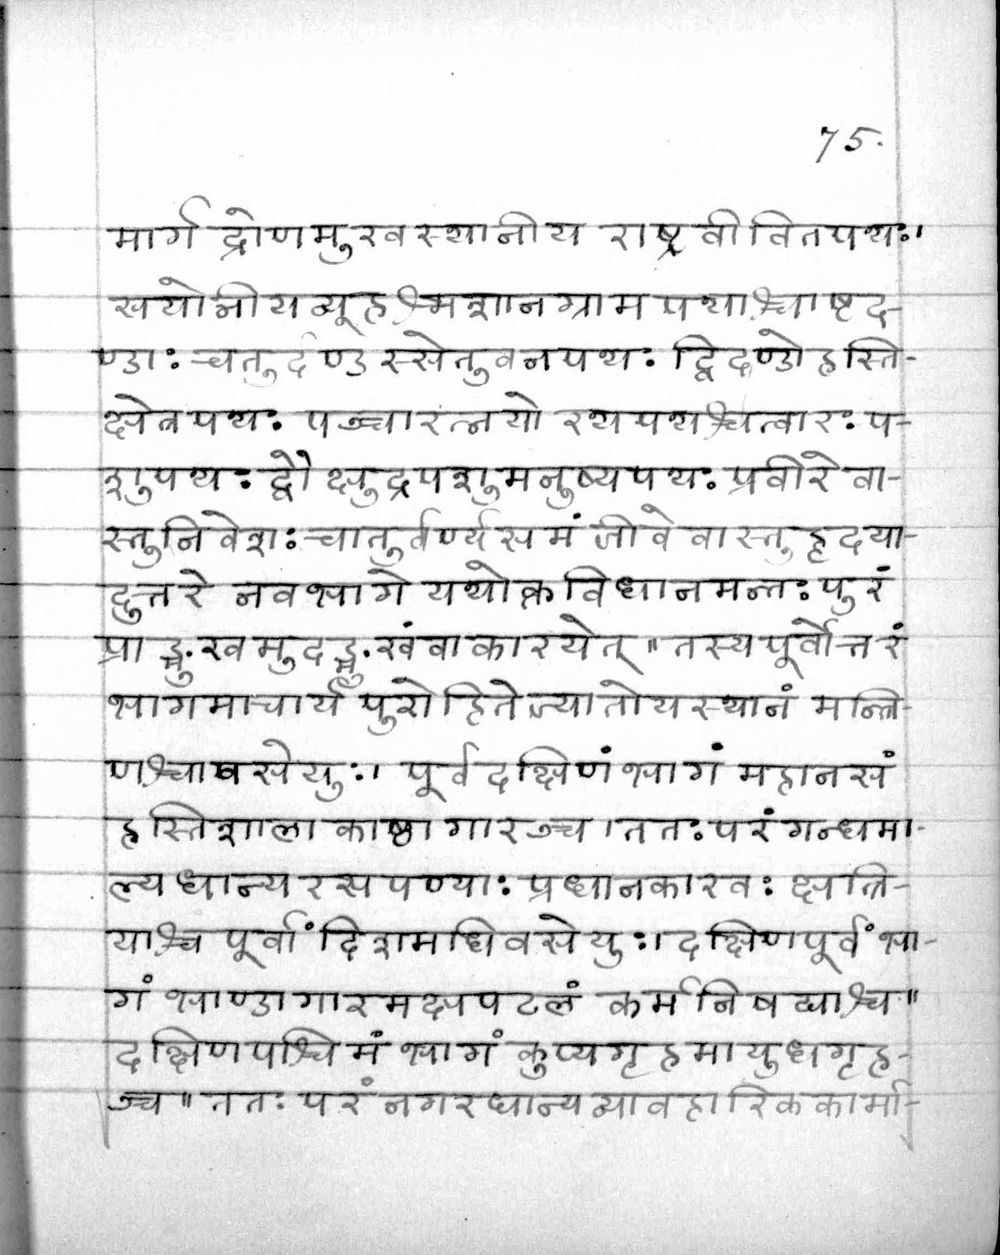 75.
मार्ग द्रोणमुखस्थानीय राष्ट्रवीवितपथः।
सयोनीयव्यूहश्मशानग्रामपथाश्चाष्टद-
ण्डाः चतुर्दण्डस्सेतुवनपथः द्विदण्डो हस्ति-
क्षेत्रपथः पञ्चारत्नयो रथपथश्चत्वारः प-
शुपथः द्वौ क्षुद्रपशुमनुष्यपथः प्रवीरे वा-
स्तुनिवेशः चातुर्वर्ण्यसमं जीवे वास्तुहृदया-
दुत्तरे नवभागे यथोक्तविधानमन्तःपुरं
प्राङ्मुखमुदङ्मुखंवाकारयेत्॥तस्यपूर्वोत्तरं
भागमाचार्य पुरोहितेज्यातोयस्थानं मन्त्रि-
णश्चावसेयुः। पूर्वदक्षिणं भागं महानसं
हस्तिशाला काष्ठागारञ्च।ततःपरंगन्धमा-
ल्यधान्यरसपण्याः प्रधानकारवः क्षत्रि-
याश्च पूर्वां दिशमधिवसेयुः।दक्षिणपूर्वं भा-
गं भाण्डागारमक्षपटलं कर्मनिषद्याश्च॥
दक्षिणपश्चिमं भागं कुप्यगृहमायुधगृह-
ञ्च॥ततः परंनगरधान्यव्यावहारिककार्मा-